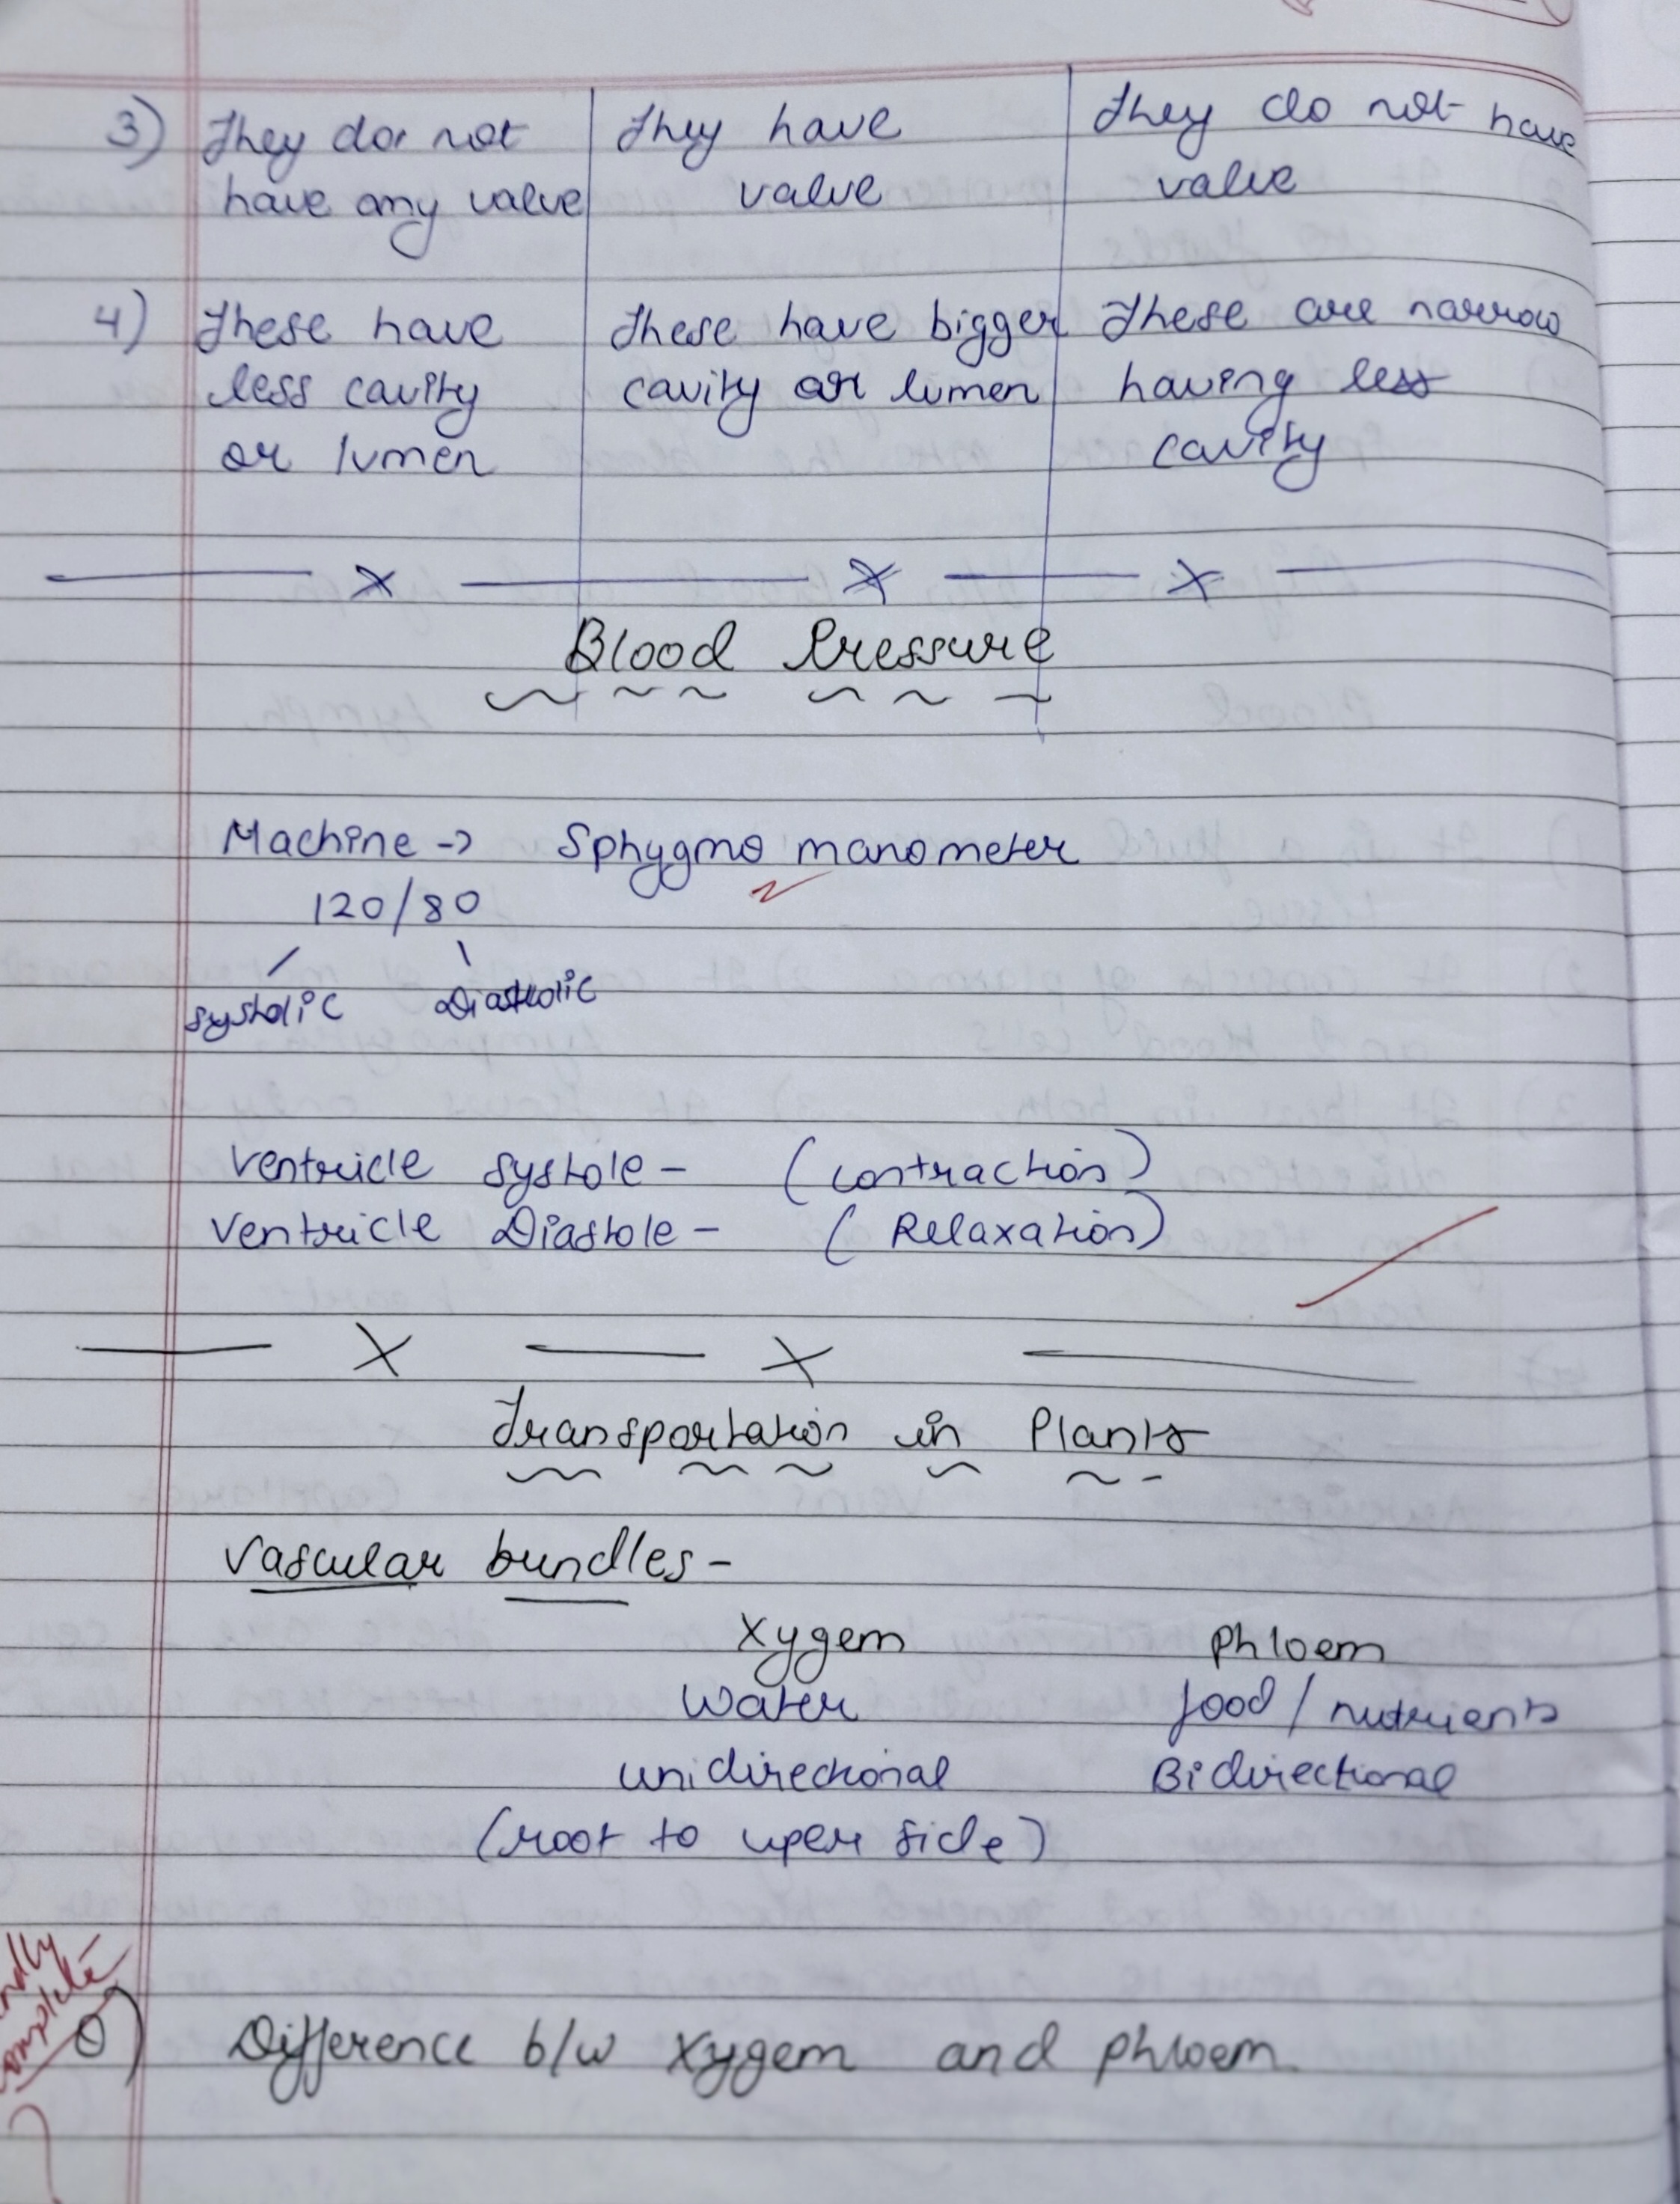 3) They do not | They have | They do not have
have any valve | valve | valve
4) These have | These have bigger | These are narrow
less cavity | cavity or lumen | having less
or lumen | cavity
x x x
Blood Pressure
Machine -> Sphygmo manometer
120/80
systolic Diastolic
Ventricle systole - (contraction)
Ventricle Diastole - (Relaxation)
X X
Transportation in Plants
Vascular bundles -
Xygem Phloem
Water food / nutrients
unidirectional Bidirectional
(root to uper side)
Q) Difference b/w Xygem and phloem.